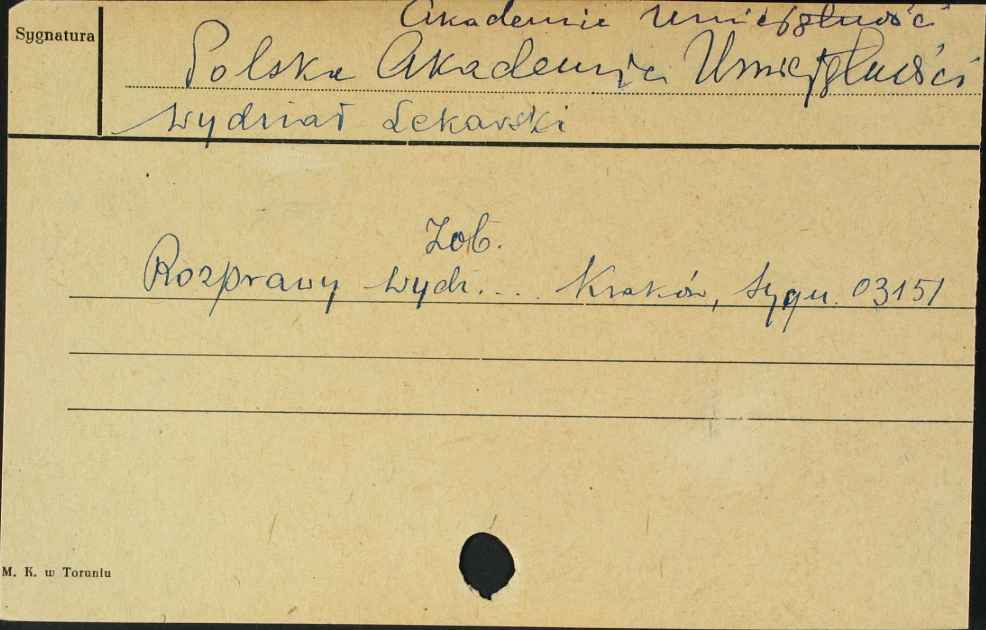 Akademie Umiejętność
Sygnatura
Polska Akademia Umiejętności
Wydział Lekarski
Zob.
Rozprawy Wydz. ... Kraków, Sygn. 03151
M. K. w Toruniu